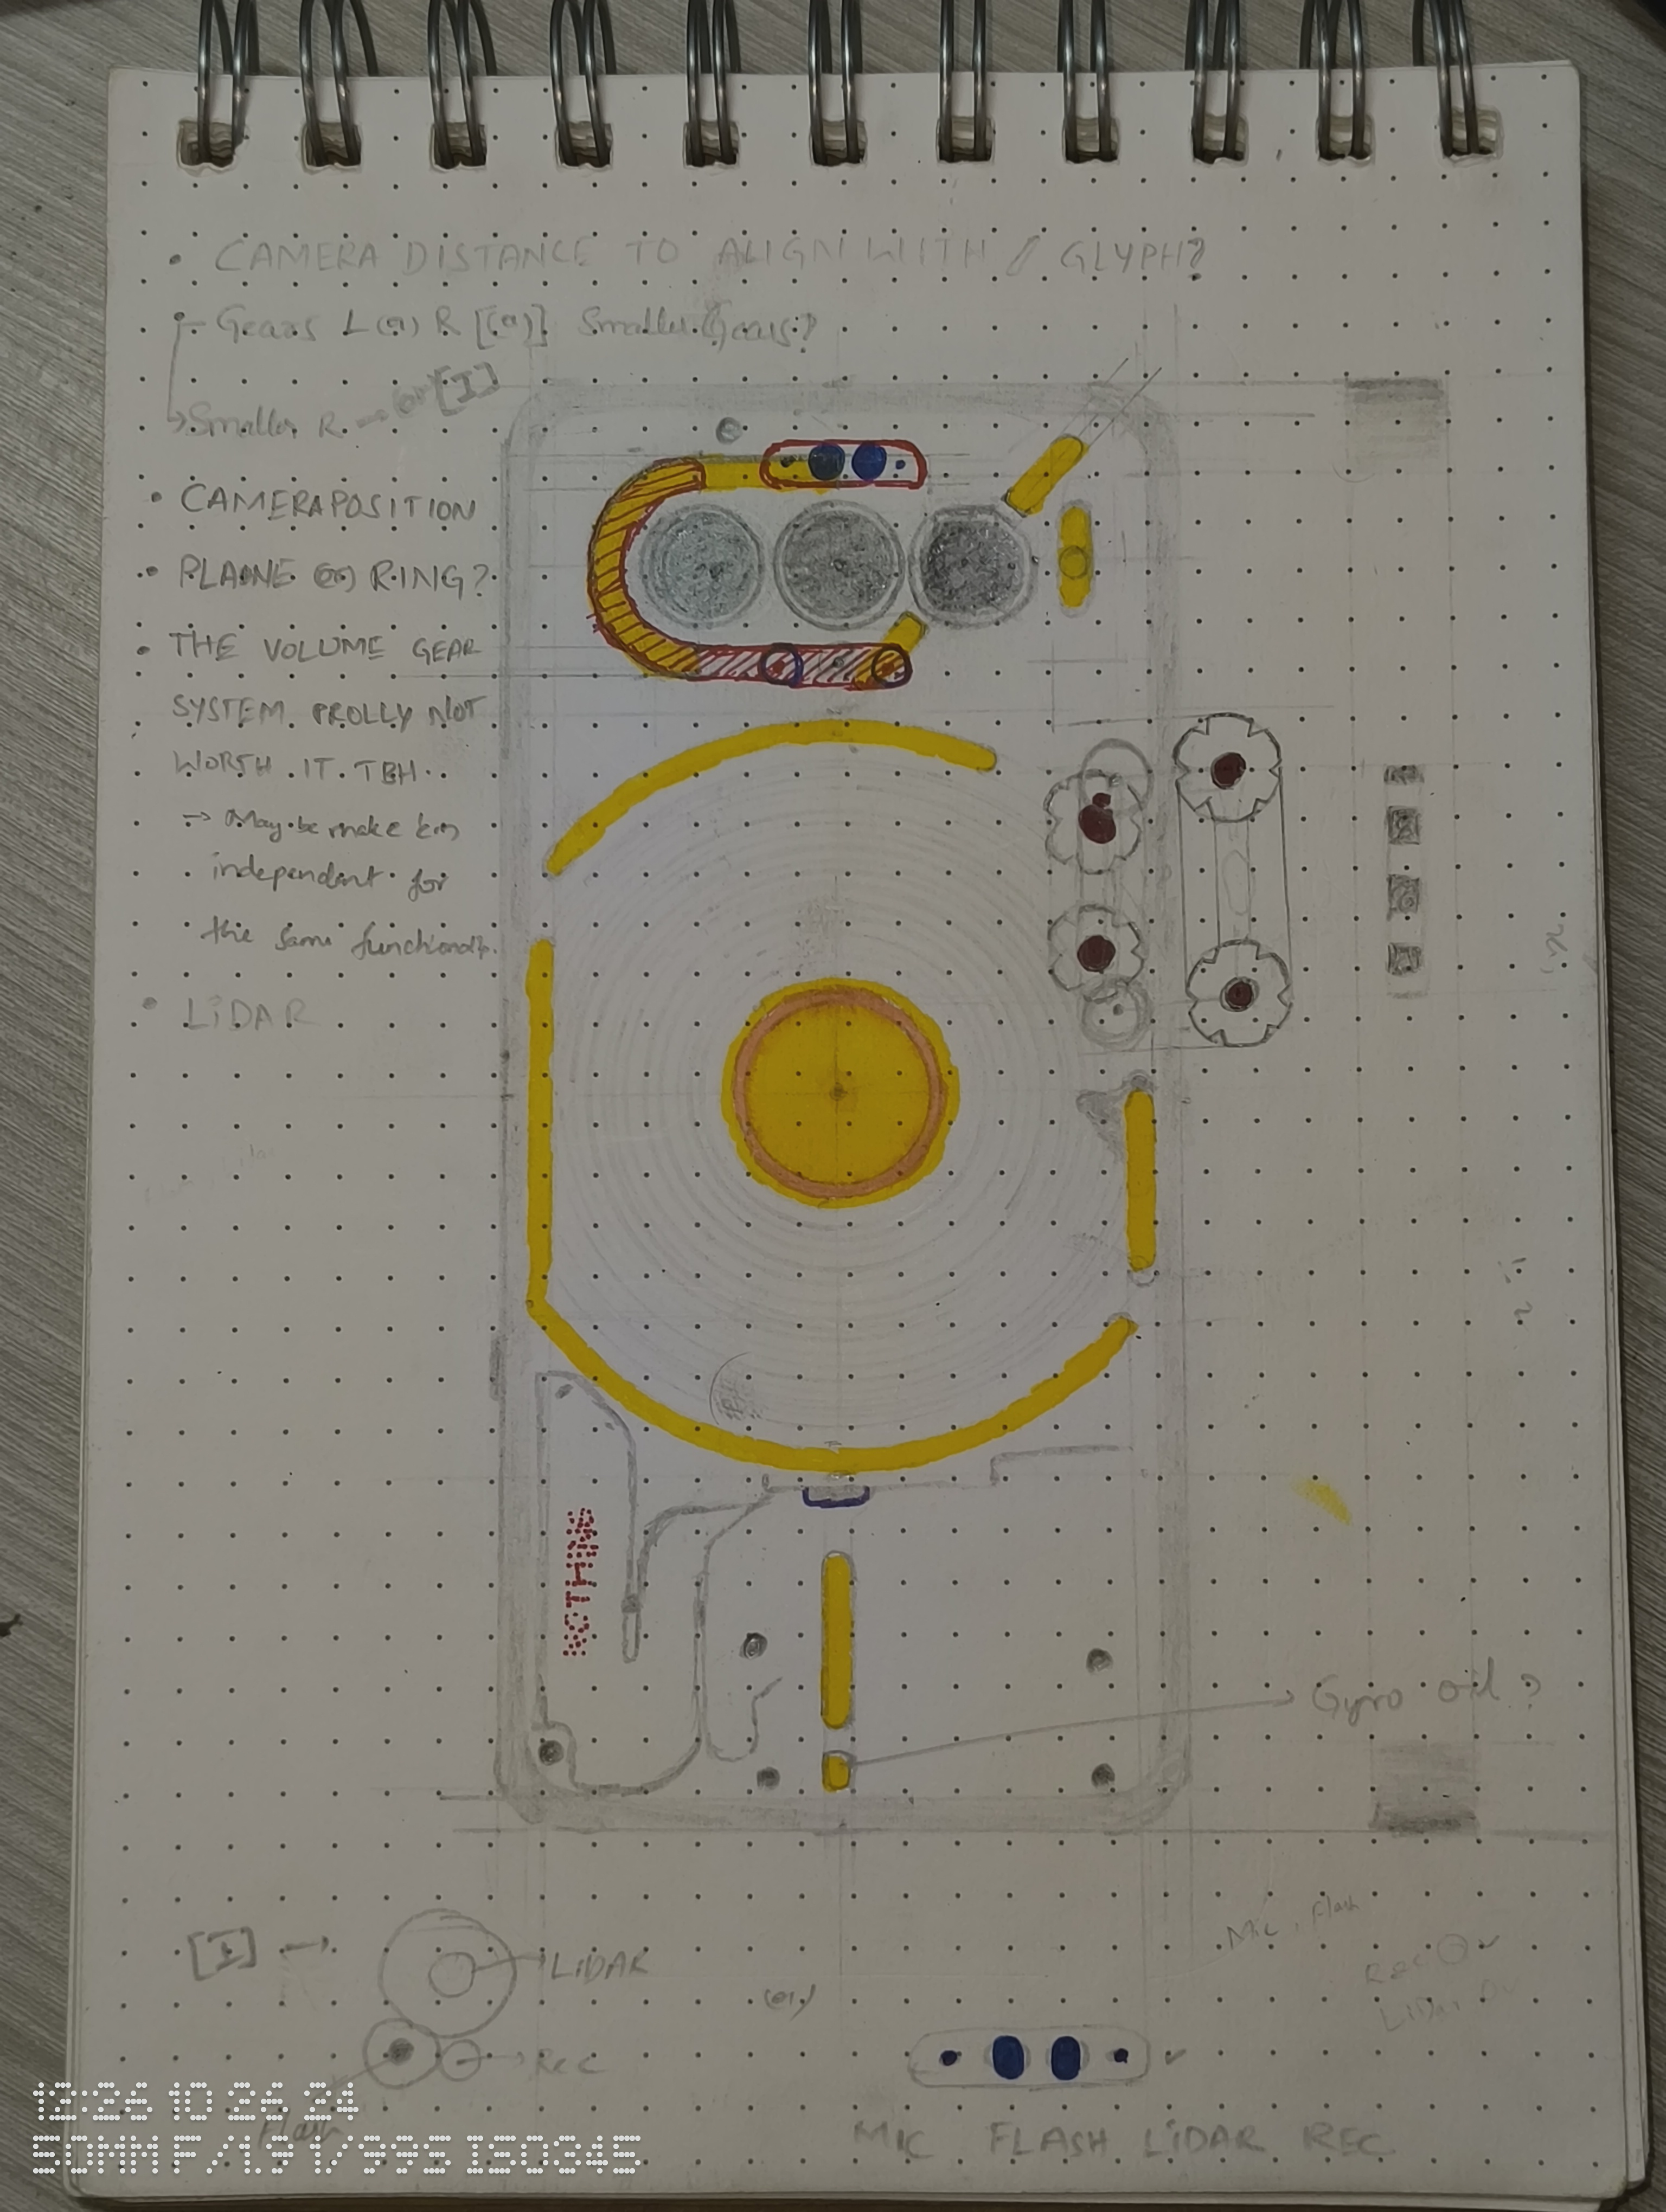 • CAMERA DISTANCE TO ALIGN WITH / GLYPH?
Gears L (or) R [(or)] Smaller Gears?
Smaller R → or [I]
• CAMERA POSITION
• PLANE (or) RING?
• THE VOLUME GEAR
SYSTEM PROLLY NOT
WORTH IT TBH.
→ May be make
independent for
the same
• LiDAR
NOTHING
Gyro oil?
[I] →
LiDAR
Rec
Flash
(or)
Mic, Flash
Rec
Lidar
MIC FLASH LiDAR REC
12:26 10 26 24
50MM F/1.9 1/99S ISO345